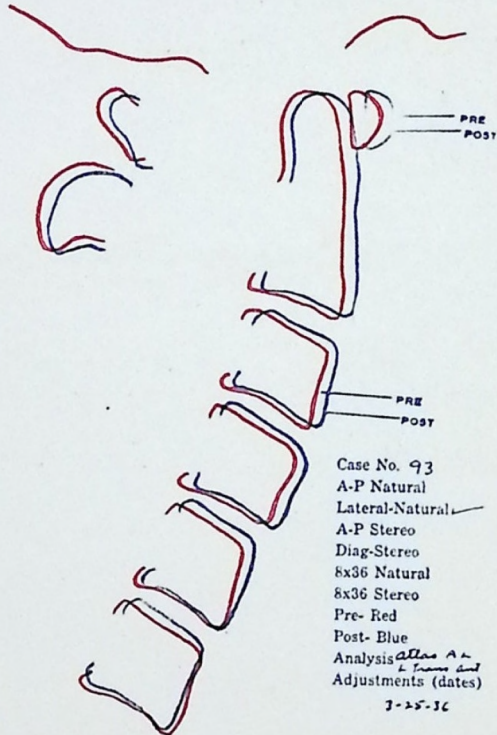 PRE
POST
PRE
POST
Case No. 93
A-P Natural
Lateral-Natural
A-P Stereo
Diag-Stereo
8x36 Natural
8x36 Stereo
Pre- Red
Post- Blue
Analysis atlas A L
L Trans and
Adjustments (dates)
3-25-36